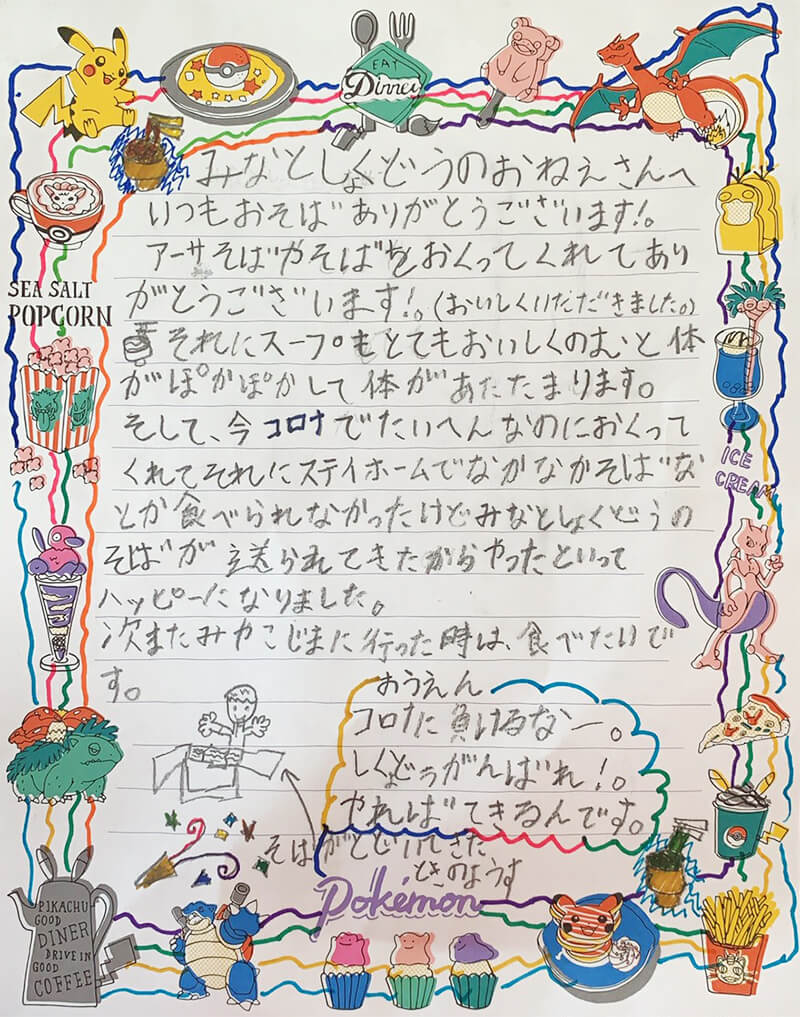 EAT
Dinner
みなとしょくどうのおねえさんへ
いつもおそばありがとうございます!。
アーサそばやそばをおくってくれてあり
がとうございます!。(おいしくいただきました。)
それにスープもとてもおいしくのむと体
がぽかぽかして体があたたまります。
そして、今コロナでたいへんなのにおくって
くれてそれにステイホームでなかなかそばな
とか食べられなかったけどみなとしょくどうの
そばが送られてきたからやったといって
ハッピーになりました。
次またみやこじまに行った時は、食べたいで
す。
おうえん
コロナに負けるなー。
しょくどうがんばれ!。
やればできるんです。
そばがとどいてきた
ときのようす
SEA SALT
POPCORN
ICE
CREAM
PIKACHU
GOOD
DINER
DRIVE IN
GOOD
COFFEE
Pokémon